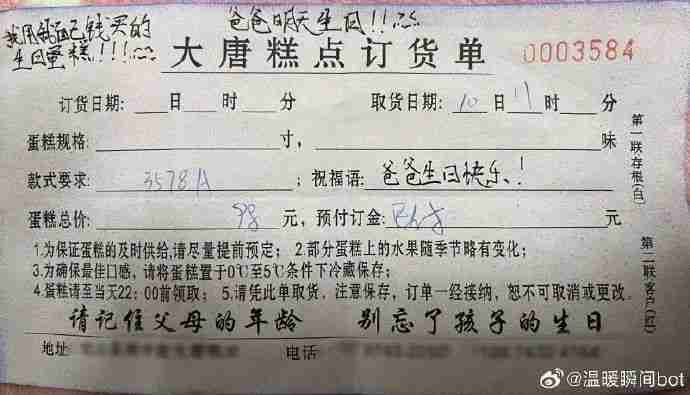 我用自己钱买的
生日蛋糕!!!
爸爸明天生日!!
大唐糕点订货单 0003584
订货日期: 日 时 分 取货日期: 10 日 11 时 分
蛋糕规格: 寸, 味
款式要求: 3578A ; 祝福语: 爸爸生日快乐!
蛋糕总价: 元, 预付订金: 元
1.为保证蛋糕的及时供给,请尽量提前预定; 2.部分蛋糕上的水果随季节略有变化;
3.为确保最佳口感,请将蛋糕置于0℃至5℃条件下冷藏保存;
4.蛋糕请至当天22:00前领取; 5.请凭此单取货,注意保存,订单一经接纳,恕不可取消或更改。
请记住父母的年龄 别忘了孩子的生日
地址: 电话:
第一联存根(白)
第二联客户(红)
@温暖瞬间bot